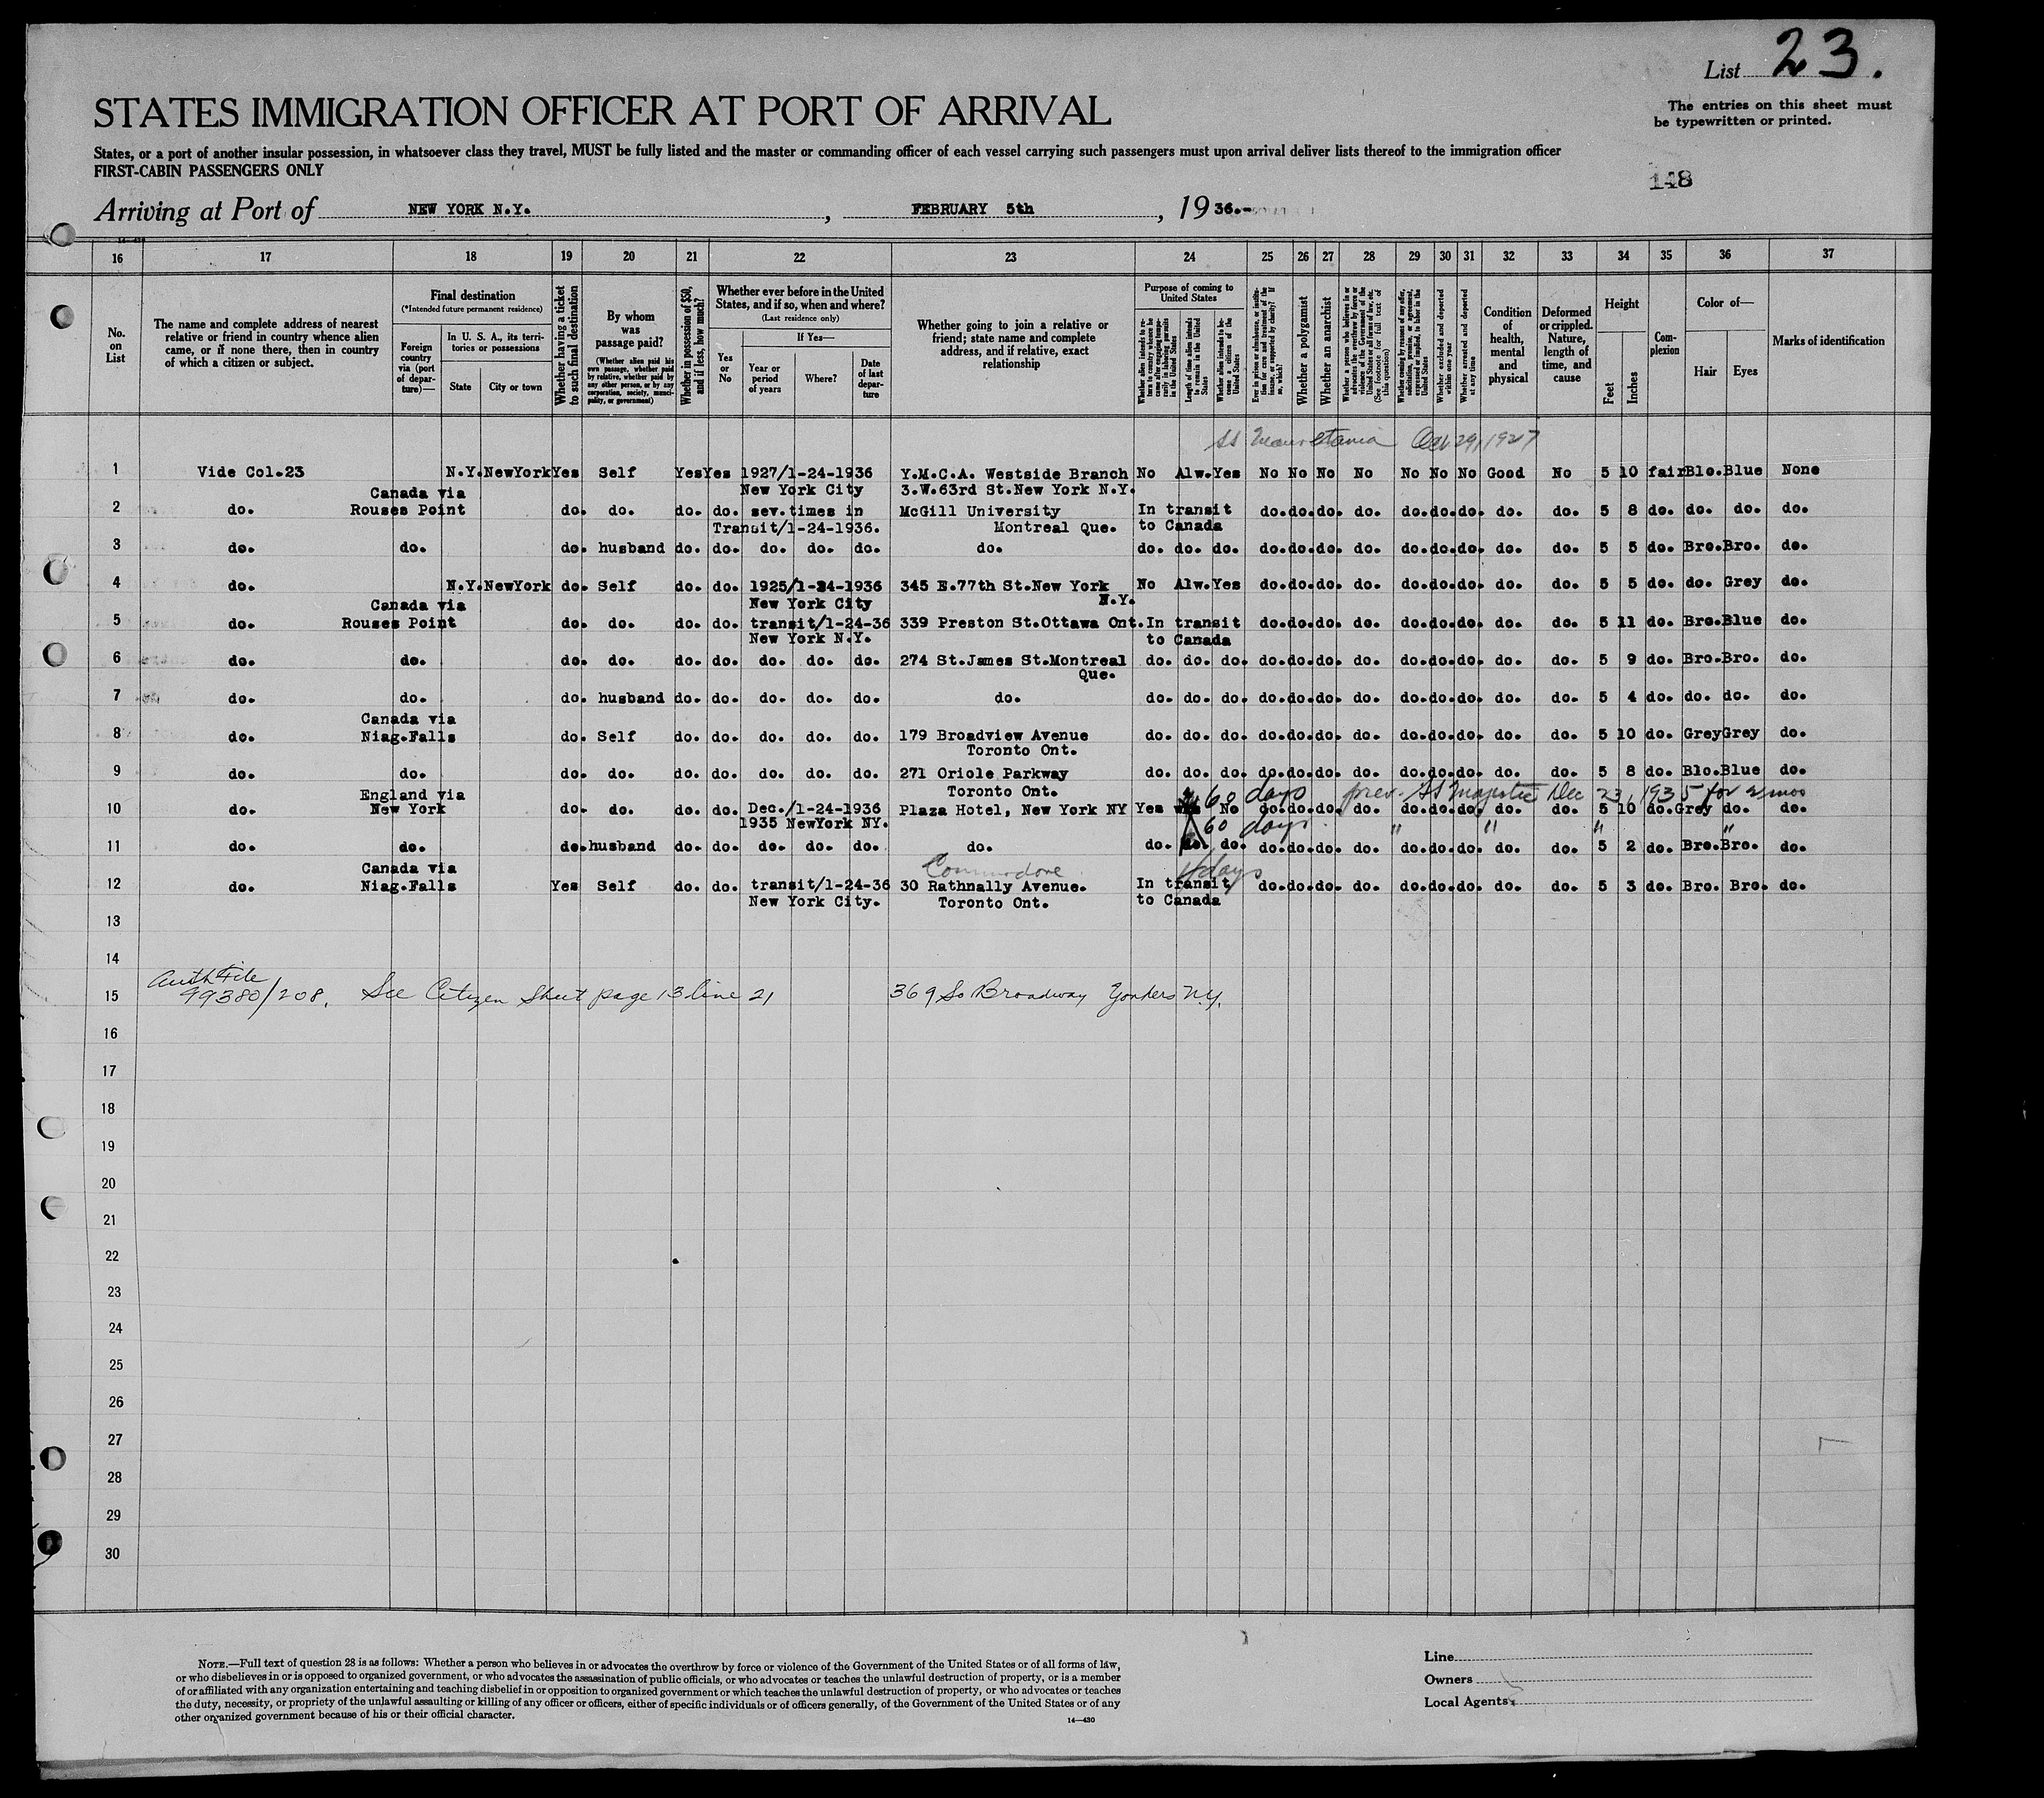 List 23.
STATES IMMIGRATION OFFICER AT PORT OF ARRIVAL
The entries on this sheet must
be typewritten or printed.
States, or a port of another insular possession, in whatsoever class they travel, MUST be fully listed and the master or commanding officer of each vessel carrying such passengers must upon arrival deliver lists thereof to the immigration officer
FIRST-CABIN PASSENGERS ONLY
148
Arriving at Port of NEW YORK N.Y. , FEBRUARY 5th , 19 36.-
16 17 18 19 20 21 22 23 24 25 26 27 28 29 30 31 32 33 34 35 36 37
No. on List
The name and complete address of nearest relative or friend in country whence alien came, or if none there, then in country of which a citizen or subject.
Final destination
(*Intended future permanent residence)
Foreign country via (port of departure)—
In U. S. A., its territories or possessions
State City or town
Whether having a ticket to such final destination
By whom was passage paid?
(Whether alien paid his own passage, whether paid by relative, whether paid by any other person, or by any corporation, society, municipality, or government)
Whether in possession of $50, and if less, how much?
Whether ever before in the United States, and if so, when and where?
(Last residence only)
Yes or No
If Yes—
Year or period of years
Where?
Date of last departure
Whether going to join a relative or friend; state name and complete address, and if relative, exact relationship
Purpose of coming to United States
Whether alien intends to return to country whence he came after engaging temporarily in laboring pursuits in the United States
Length of time alien intends to remain in the United States
Whether alien intends to become a citizen of the United States
Ever in prison or almshouse, or institution for care and treatment of the insane, or supported by charity? If so, which?
Whether a polygamist
Whether an anarchist
Whether a person who believes in or advocates the overthrow by force or violence of the Government of the United States or all forms of law, etc. (See footnote for full text of this question)
Whether coming by reason of any offer, solicitation, promise, or agreement, expressed or implied, to labor in the United States
Whether excluded and deported within one year
Whether arrested and deported at any time
Condition of health, mental and physical
Deformed or crippled. Nature, length of time, and cause
Height
Feet Inches
Complexion
Color of—
Hair Eyes
Marks of identification
SS Mauretania Oct 29, 1927
1 Vide Col.23 N.Y. NewYork Yes Self Yes Yes 1927/1-24-1936 Y.M.C.A. Westside Branch No Alw. Yes No No No No No No No Good No 5 10 fair Blo. Blue None
Canada via New York City 3.W.63rd St.New York N.Y.
2 do. Rouses Point do. do. do. do. sev.times in McGill University In transit do. do. do. do. do. do. do. do. do. 5 8 do. do. do. do.
Transit/1-24-1936. Montreal Que. to Canada
3 do. do. do. husband do. do. do. do. do. do. do. do. do. do. do. do. do. do. do. do. do. do. 5 5 do. Bro. Bro. do.
4 do. N.Y. NewYork do. Self do. do. 1925/1-24-1936 345 E.77th St.New York No Alw. Yes do. do. do. do. do. do. do. do. do. 5 5 do. do. Grey do.
Canada via New York City N.Y.
5 do. Rouses Point do. do. do. do. transit/1-24-36 339 Preston St.Ottawa Ont. In transit do. do. do. do. do. do. do. do. do. 5 11 do. Bro. Blue do.
New York N.Y. to Canada
6 do. do. do. do. do. do. do. do. do. 274 St.James St.Montreal do. do. do. do. do. do. do. do. do. do. do. do. 5 9 do. Bro. Bro. do.
Que.
7 do. do. do. husband do. do. do. do. do. do. do. do. do. do. do. do. do. do. do. do. do. do. 5 4 do. do. do. do.
Canada via
8 do. Niag.Falls do. Self do. do. do. do. do. 179 Broadview Avenue do. do. do. do. do. do. do. do. do. do. do. do. 5 10 do. Grey Grey do.
Toronto Ont.
9 do. do. do. do. do. do. do. do. do. 271 Oriole Parkway do. do. do. do. do. do. do. do. do. do. do. do. 5 8 do. Blo. Blue do.
England via Toronto Ont. 60 days prev. SS Majestic Dec 23, 1935 for 2 mos
10 do. New York do. do. do. do. Dec./1-24-1936 Plaza Hotel, New York NY Yes No do. do. do. do. do. do. do. do. do. 5 10 do. Grey do. do.
1935 NewYork NY. 60 days " " " "
11 do. do. do. husband do. do. do. do. do. do. do. do. do. do. do. do. do. do. do. do. do. do. 5 2 do. Bro. Bro. do.
Canada via Commodore 4 days
12 do. Niag.Falls Yes Self do. do. transit/1-24-36 30 Rathnally Avenue. In transit do. do. do. do. do. do. do. do. do. 5 3 do. Bro. Bro. do.
New York City. Toronto Ont. to Canada
13
14
Auth File
15 99380/208. See Citizen Sheet page 13 line 21 369 So Broadway Yonkers N.Y.
16
17
18
19
20
21
22
23
24
25
26
27
28
29
30
NOTE.—Full text of question 28 is as follows: Whether a person who believes in or advocates the overthrow by force or violence of the Government of the United States or of all forms of law,
or who disbelieves in or is opposed to organized government, or who advocates the assassination of public officials, or who advocates or teaches the unlawful destruction of property, or is a member
of or affiliated with any organization entertaining and teaching disbelief in or opposition to organized government or which teaches the unlawful destruction of property, or who advocates or teaches
the duty, necessity, or propriety of the unlawful assaulting or killing of any officer or officers, either of specific individuals or of officers generally, of the Government of the United States or of any
other organized government because of his or their official character.
14—430
Line
Owners
Local Agents